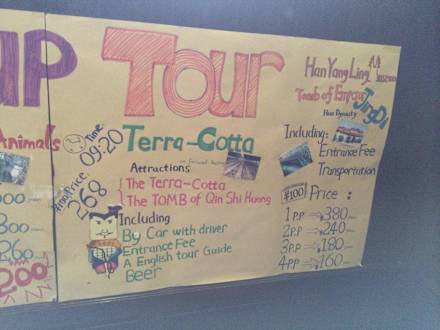 UP
Animals
200
Tour
Time
09:20
Price
268
Terra-Cotta
Attractions
The Terra-Cotta
The TOMB of Qin Shi Huang
Including
By Car with driver
Entrance Fee
A English tour Guide
Beer
Han Yang Ling Museum
Tomb of Emperor JingDi
Han Dynasty
Including:
Entrance Fee
Transportation
¥100 Price :
1PP ⇒ 380
2PP ⇒ 240
3PP ⇒ 180
4PP ⇒ 160